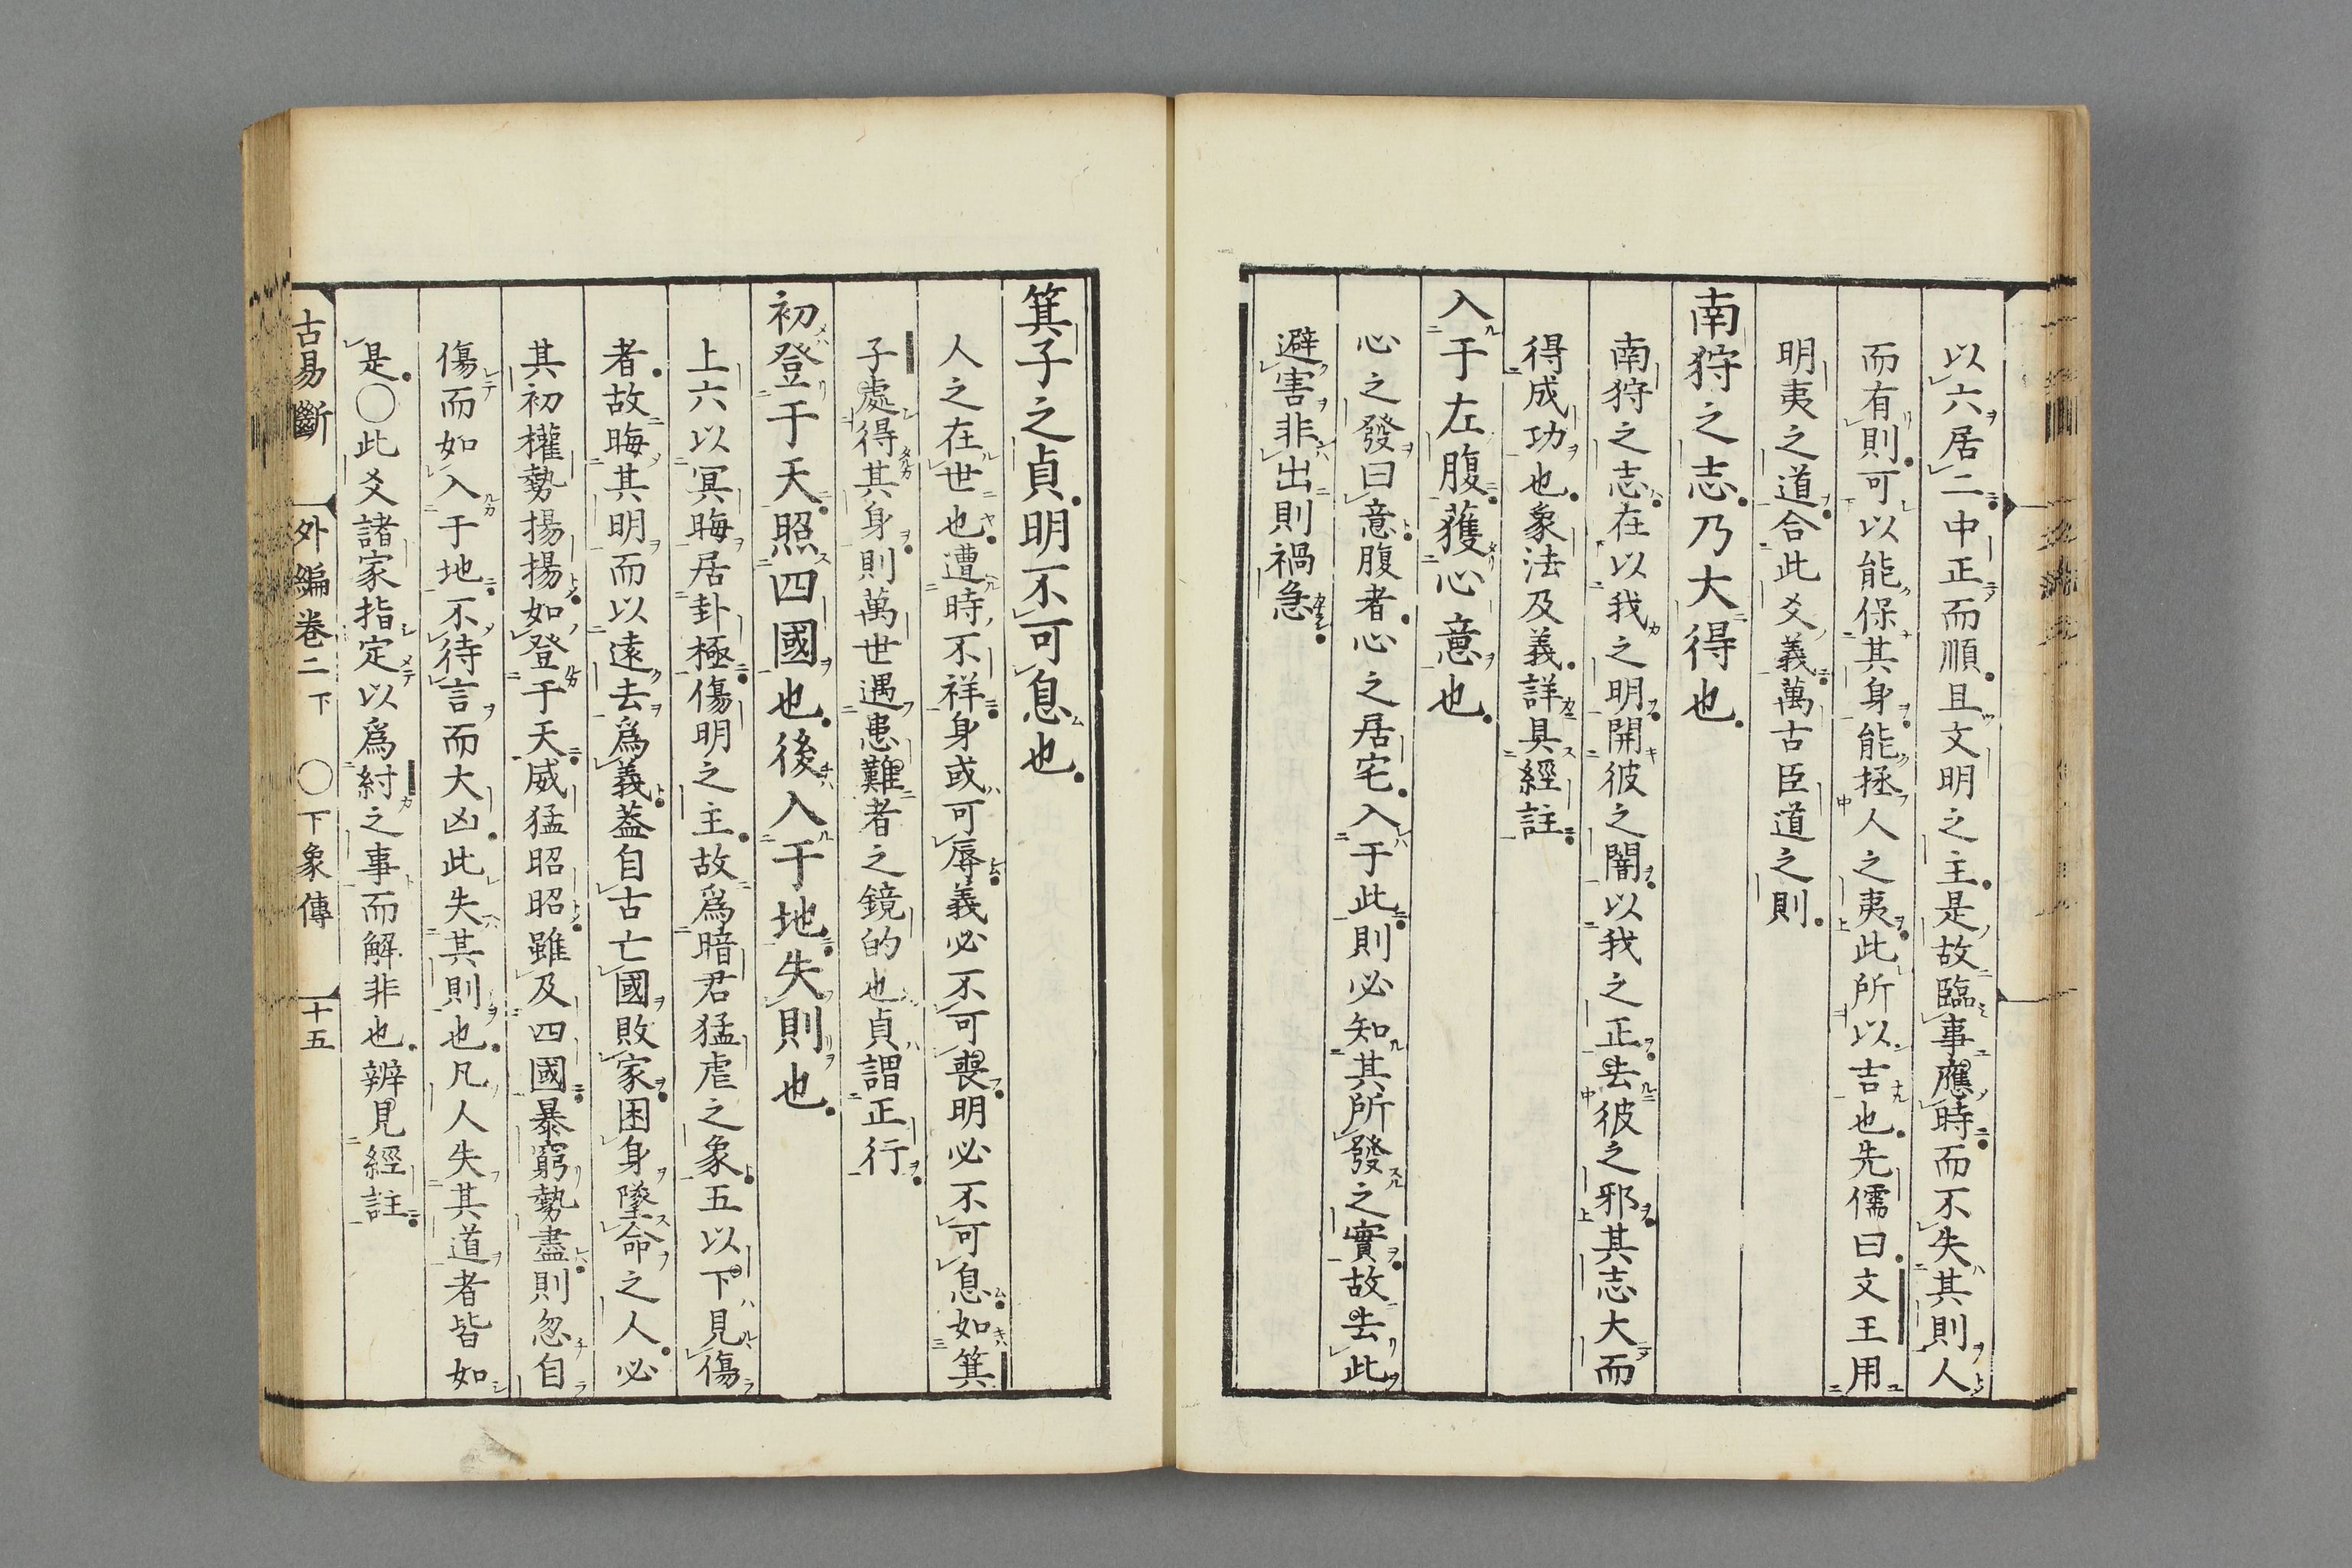 以六居二中正而順且文明之主是故臨事應時而不失其則人
而有則可以能保其身能拯人之夷此所以吉也先儒曰文王用
明夷之道合此爻義萬古臣道之則
南狩之志乃大得也
南狩之志在以我之明開彼之闇以我之正去彼之邪其志大而
得成功也象法及義詳具經註
入于左腹獲心意也
心之發曰意腹者心之居宅入于此則必知其所發之實故去此
避害非出則禍急
箕子之貞明不可息也
人之在世也遭時不祥身或可辱義必不可喪明必不可息如箕
子處得其身則萬世遇患難者之鏡的也貞謂正行
初登于天照四國也後入于地失則也
上六以冥晦居卦極傷明之主故爲暗君猛虐之象五以下見傷
者故晦其明而以遠去爲義蓋自古亡國敗家困身墜命之人必
其初權勢揚揚如登于天威猛昭昭雖及四國暴窮勢盡則忽自
傷而如入于地不待言而大凶此失其則也凡人失其道者皆如
是○此爻諸家指定以爲紂之事而解非也辨見經註
古易斷 外編卷二下 ○下象傳 十五